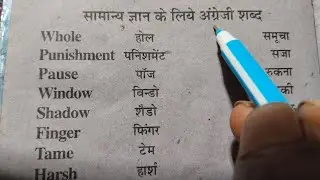 सामान्य ज्ञान के लिये अंग्रेजी शब्द
Whole होल समूचा
Punishment पनिशमेंट सजा
Pause पॉज
Window विन्डो
Shadow शैडो
Finger फिंगर
Tame टेम
Harsh हार्श